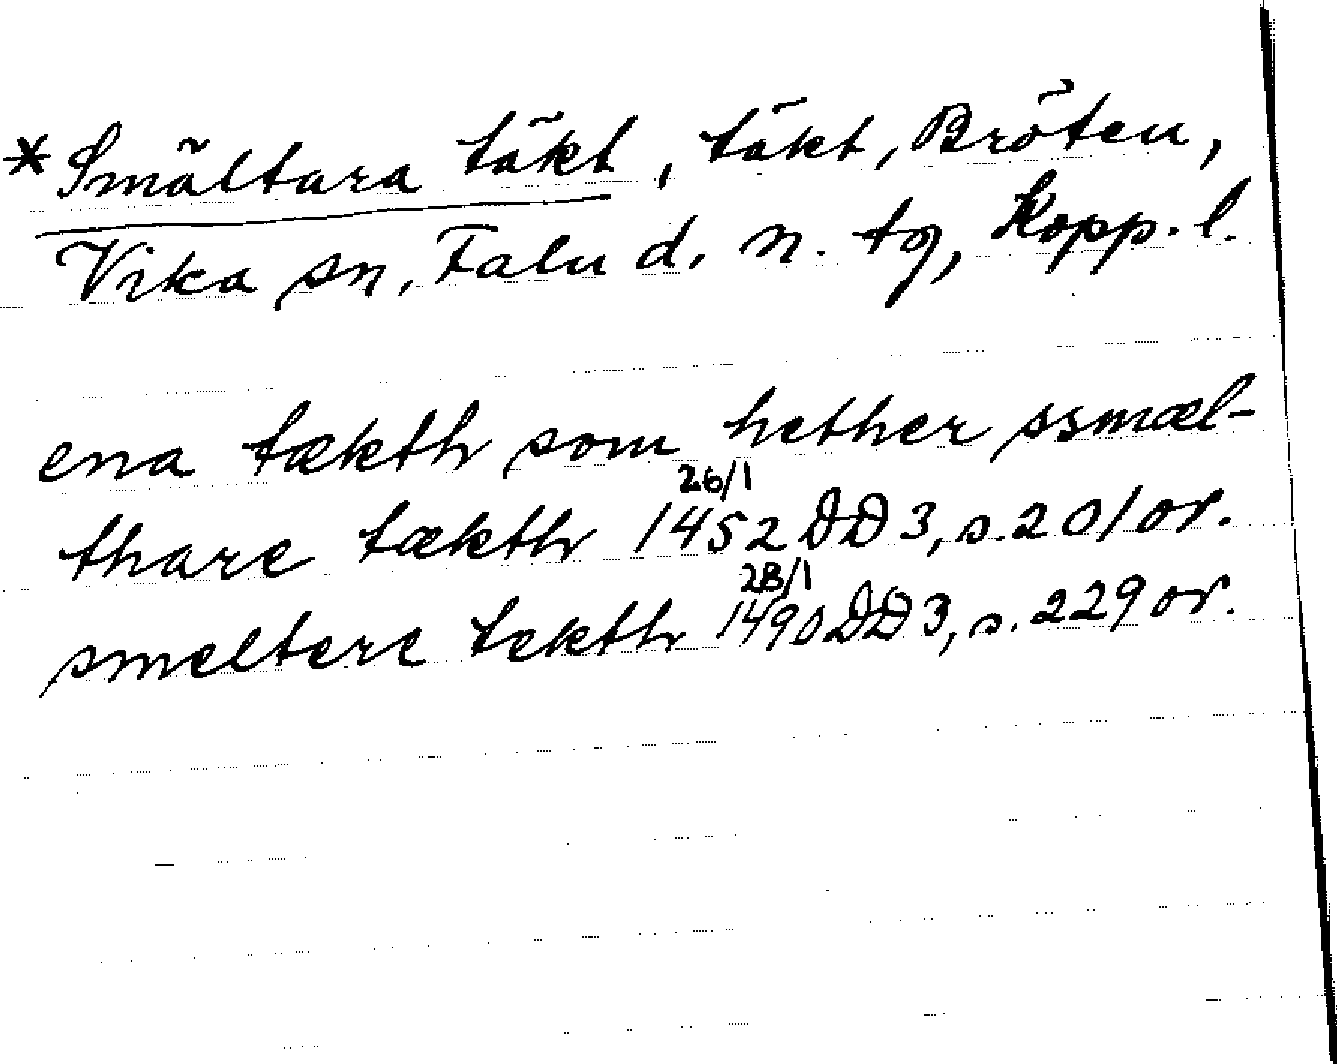 *Smältara täkt, täkt, Bröten,
Vika sn, Falu d. n. tg, Kopp. l.
ena tækth som hether ssmæl-
thare tækth 26/1 1452 DD 3, s. 201 or.
smeltere tekth 28/1 1490 DD 3, s. 229 or.